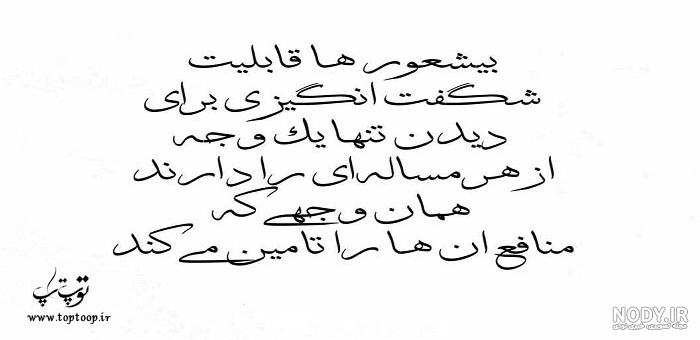 بیشعور ها قابلیت
شگفت انگیزی برای
دیدن تنها یك وجه
از هر مساله‌ای را دارند
همان وجهی که
منافع ان ها را تامین می کند
توپ تاپ
www.toptoop.ir
NODY.IR